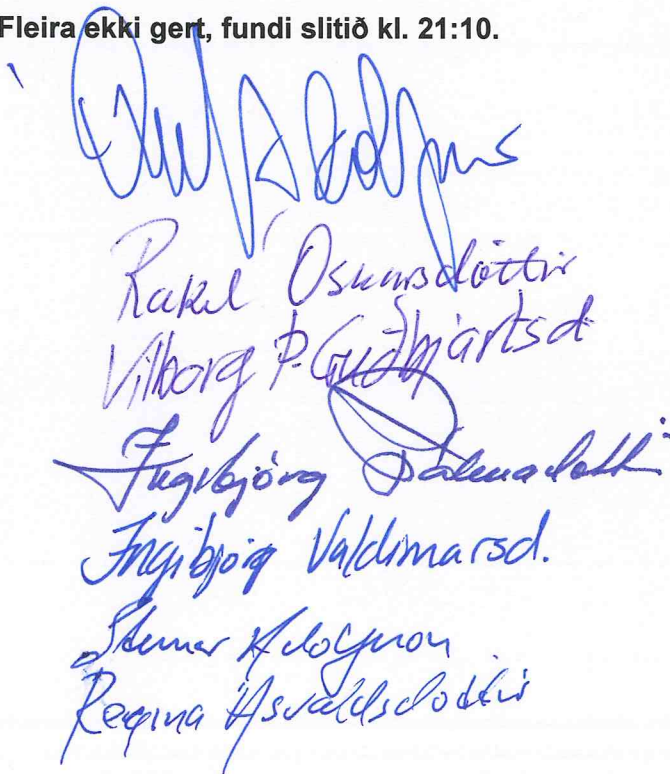 Fleira ekki gert, fundi slitið kl. 21:10.
Rakel Óskarsdóttir
Vilborg Þ. Guðbjartsd
Ingibjörg Pálmadóttir
Ingibjörg Valdimarsd.
Steinar Adolfsson
Regína Ásvaldsdóttir